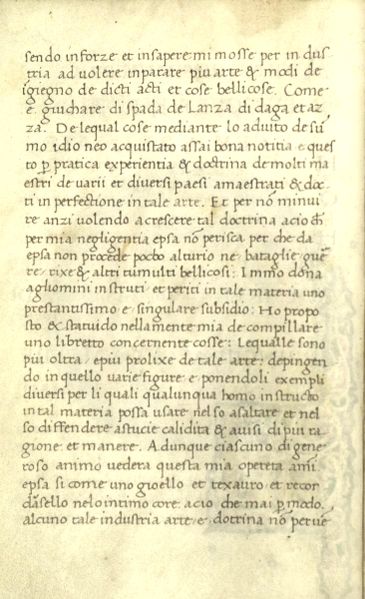 sendo in forze et in sapere mi mosse per in dus
tria ad volere inparare piu arte & modi de
igiegno de dicti acti et cose bellicose. Come
e. giuchare di spada de Lanza di daga et az
za. De lequal cose mediante lo adiuto de su
mo idio neo acquistato assai bona notitia e ques
to p̱ pratica experientia & doctrina de molti ma
estri de varii et diversi paesi amaestrati & doc
ti in perfectione in tale arte. Et per nō minui
re anzi volendo acrescere tal doctrina acio ch̄
per mia negligentia epsa nō perisca per che da
epsa non procede pocho alturio ne bataglie gue
re rixe & altri tumulti bellicosi: Immo dona
agliomini instruti et periti in tale materia uno
prestantissimo e singulare subsidio: Ho propo
sto & statuido nella mente mia de compillare
uno libretto concernente cosse: Lequalle sono
piu oltra, e piu prolixe de tale arte: depingen
do in quello varie figure e ponendoli exempli
diversi per li quali qualunqua homo instructo
in tal materia possa usare nel so asaltare et nel
so diffendere astucie calidita & avisi di piu ra
gione et manere. Adunque ciascuno di gene
roso animo vedera questa mia opereta ami
epsa si come uno gioello et texauro et recor
dāsello nelo intimo core: acio che mai p̱ modo
alcuno tale industria arte e dotrina nō perue